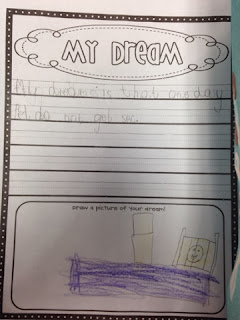 MY DREAM
My dream is that one day
I do not get sic.
Draw a picture of your dream!